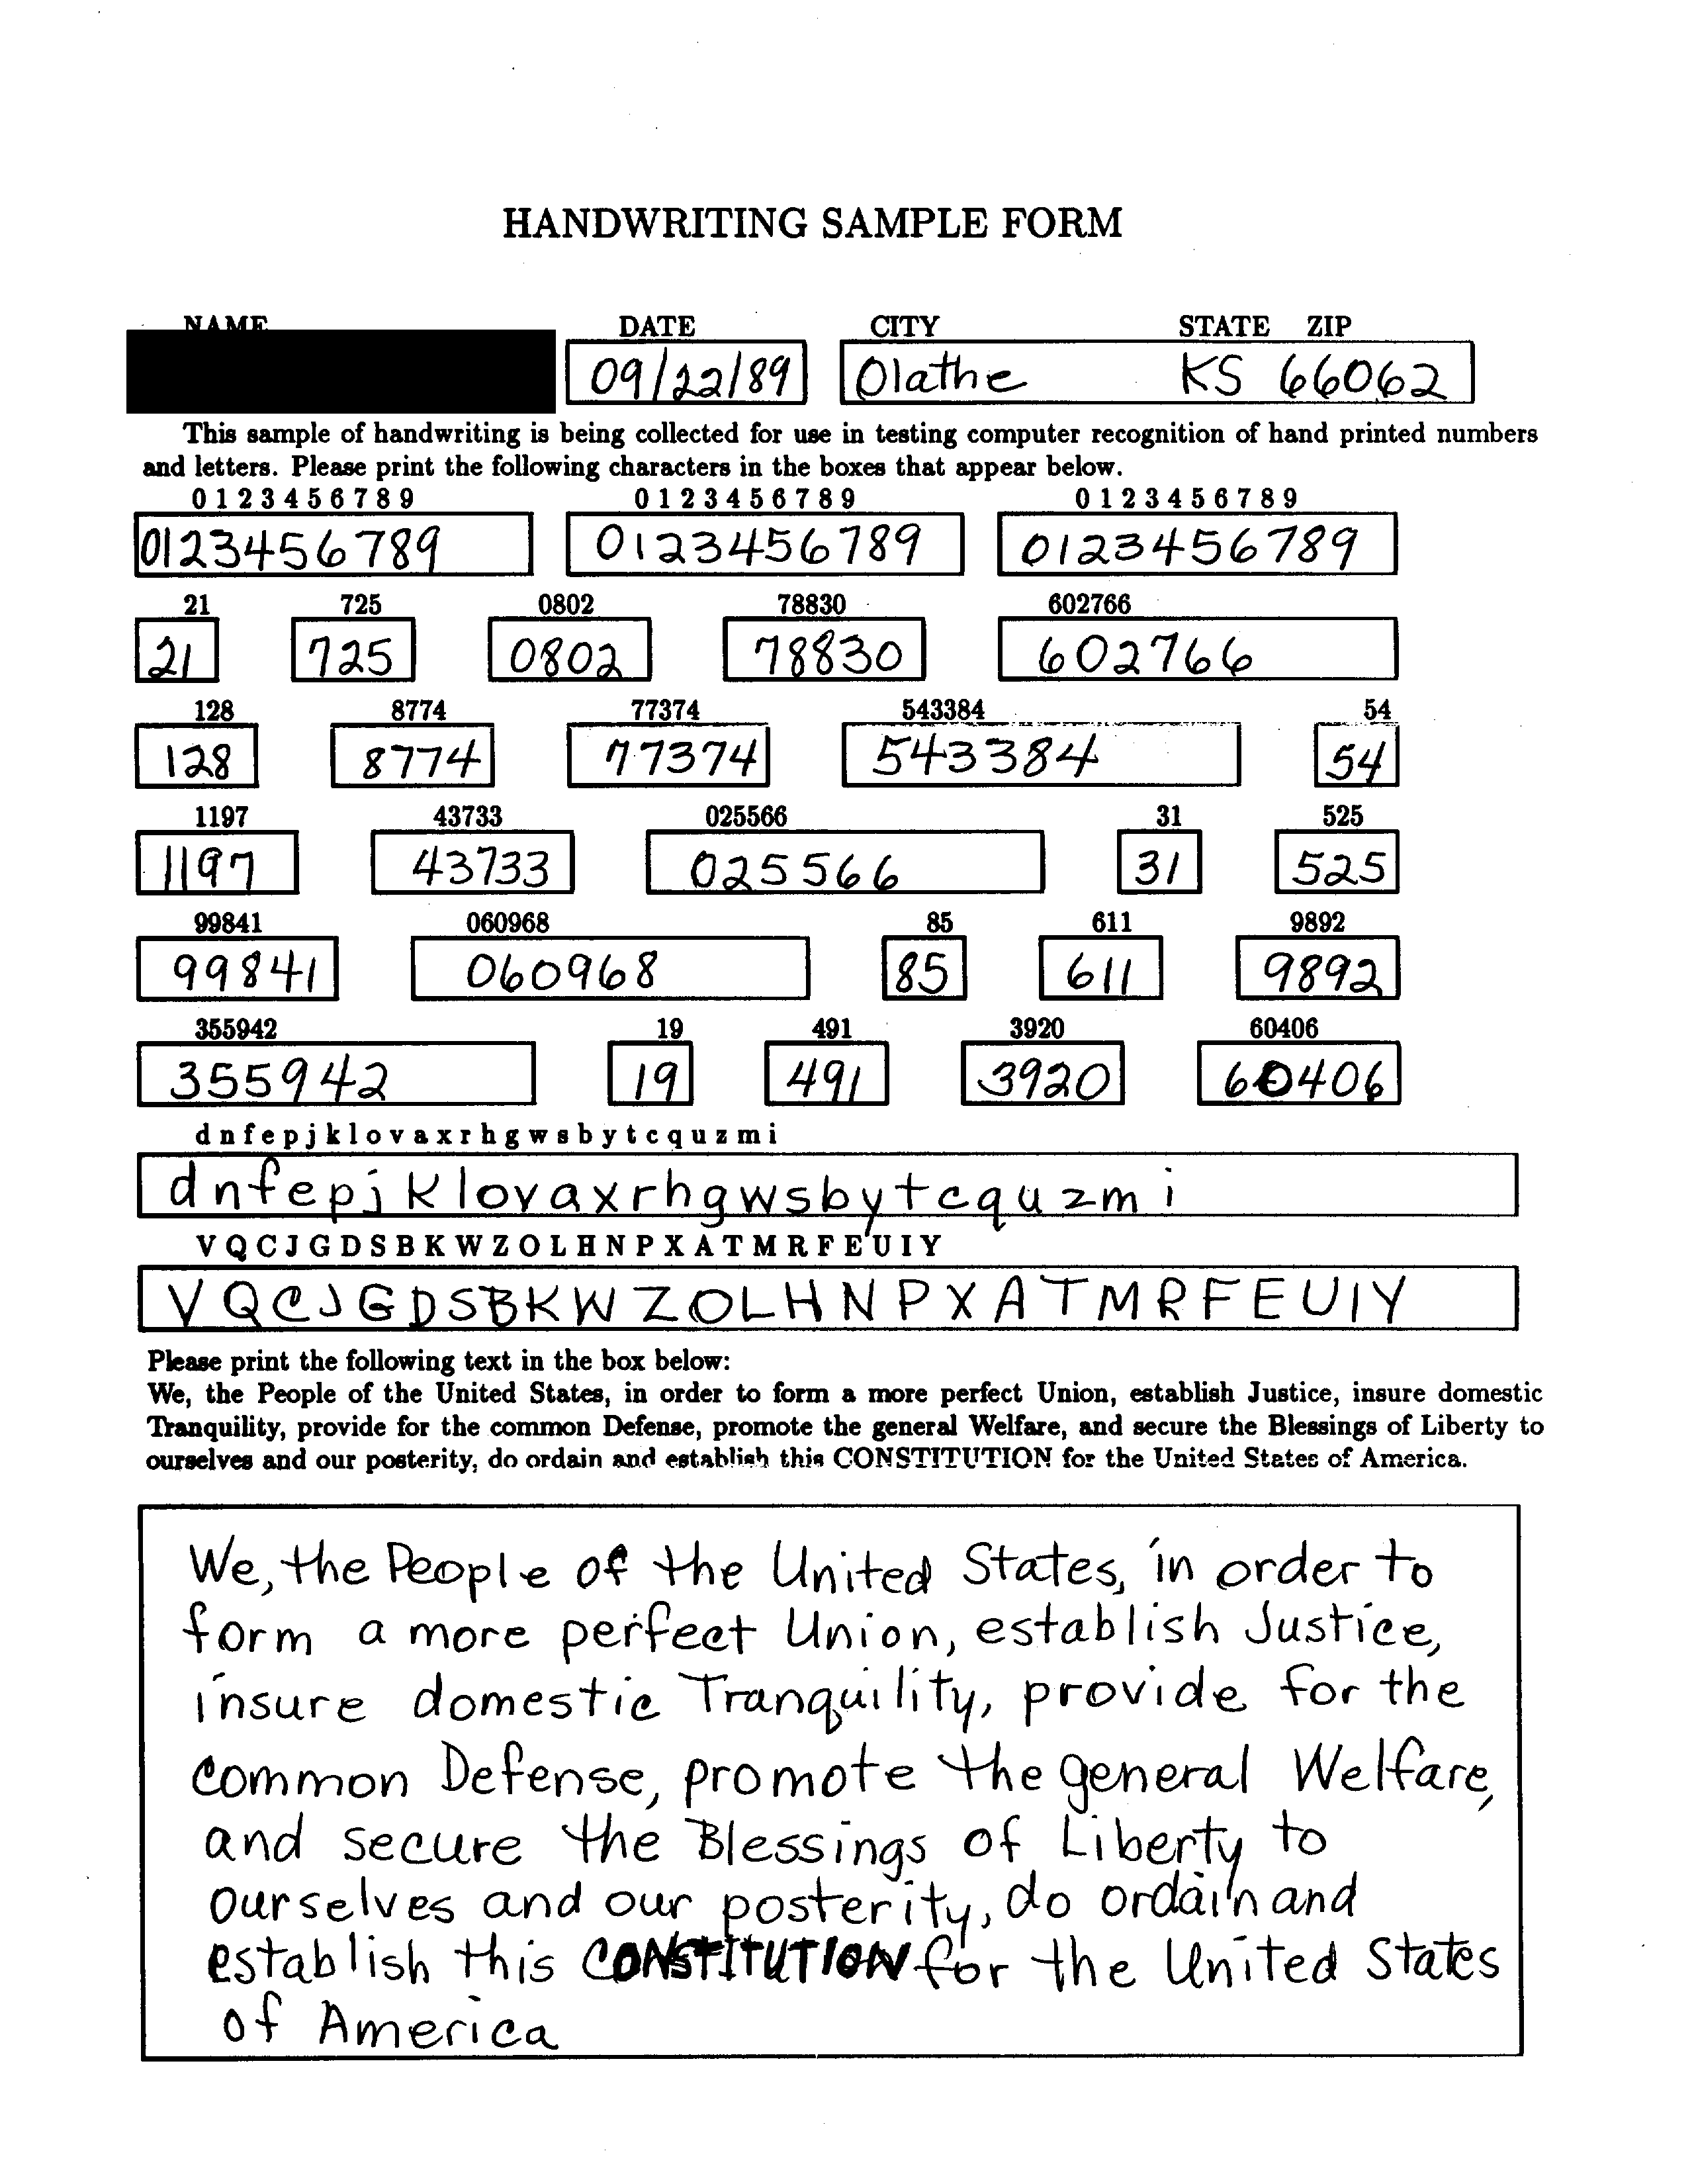 HANDWRITING SAMPLE FORM
NAME DATE CITY STATE ZIP
09/22/89 Olathe KS 66062
This sample of handwriting is being collected for use in testing computer recognition of hand printed numbers
and letters. Please print the following characters in the boxes that appear below.
0 1 2 3 4 5 6 7 8 9 0 1 2 3 4 5 6 7 8 9 0 1 2 3 4 5 6 7 8 9
0123456789 0123456789 0123456789
21 725 0802 78830 602766
21 725 0802 78830 602766
128 8774 77374 543384 54
128 8774 77374 543384 54
1197 43733 025566 31 525
1197 43733 025566 31 525
99841 060968 85 611 9892
99841 060968 85 611 9892
355942 19 491 3920 60406
355942 19 491 3920 60406
d n f e p j k l o v a x r h g w s b y t c q u z m i
d n f e p j k l o v a x r h g w s b y t c q u z m i
V Q C J G D S B K W Z O L H N P X A T M R F E U I Y
V Q C J G D S B K W Z O L H N P X A T M R F E U I Y
Please print the following text in the box below:
We, the People of the United States, in order to form a more perfect Union, establish Justice, insure domestic
Tranquility, provide for the common Defense, promote the general Welfare, and secure the Blessings of Liberty to
ourselves and our posterity, do ordain and establish this CONSTITUTION for the United States of America.
We, the People of the United States, in order to
form a more perfect Union, establish Justice,
insure domestic Tranquility, provide for the
common Defense, promote the general Welfare,
and secure the Blessings of Liberty to
ourselves and our posterity, do ordain and
establish this CONSTITUTION for the United States
of America